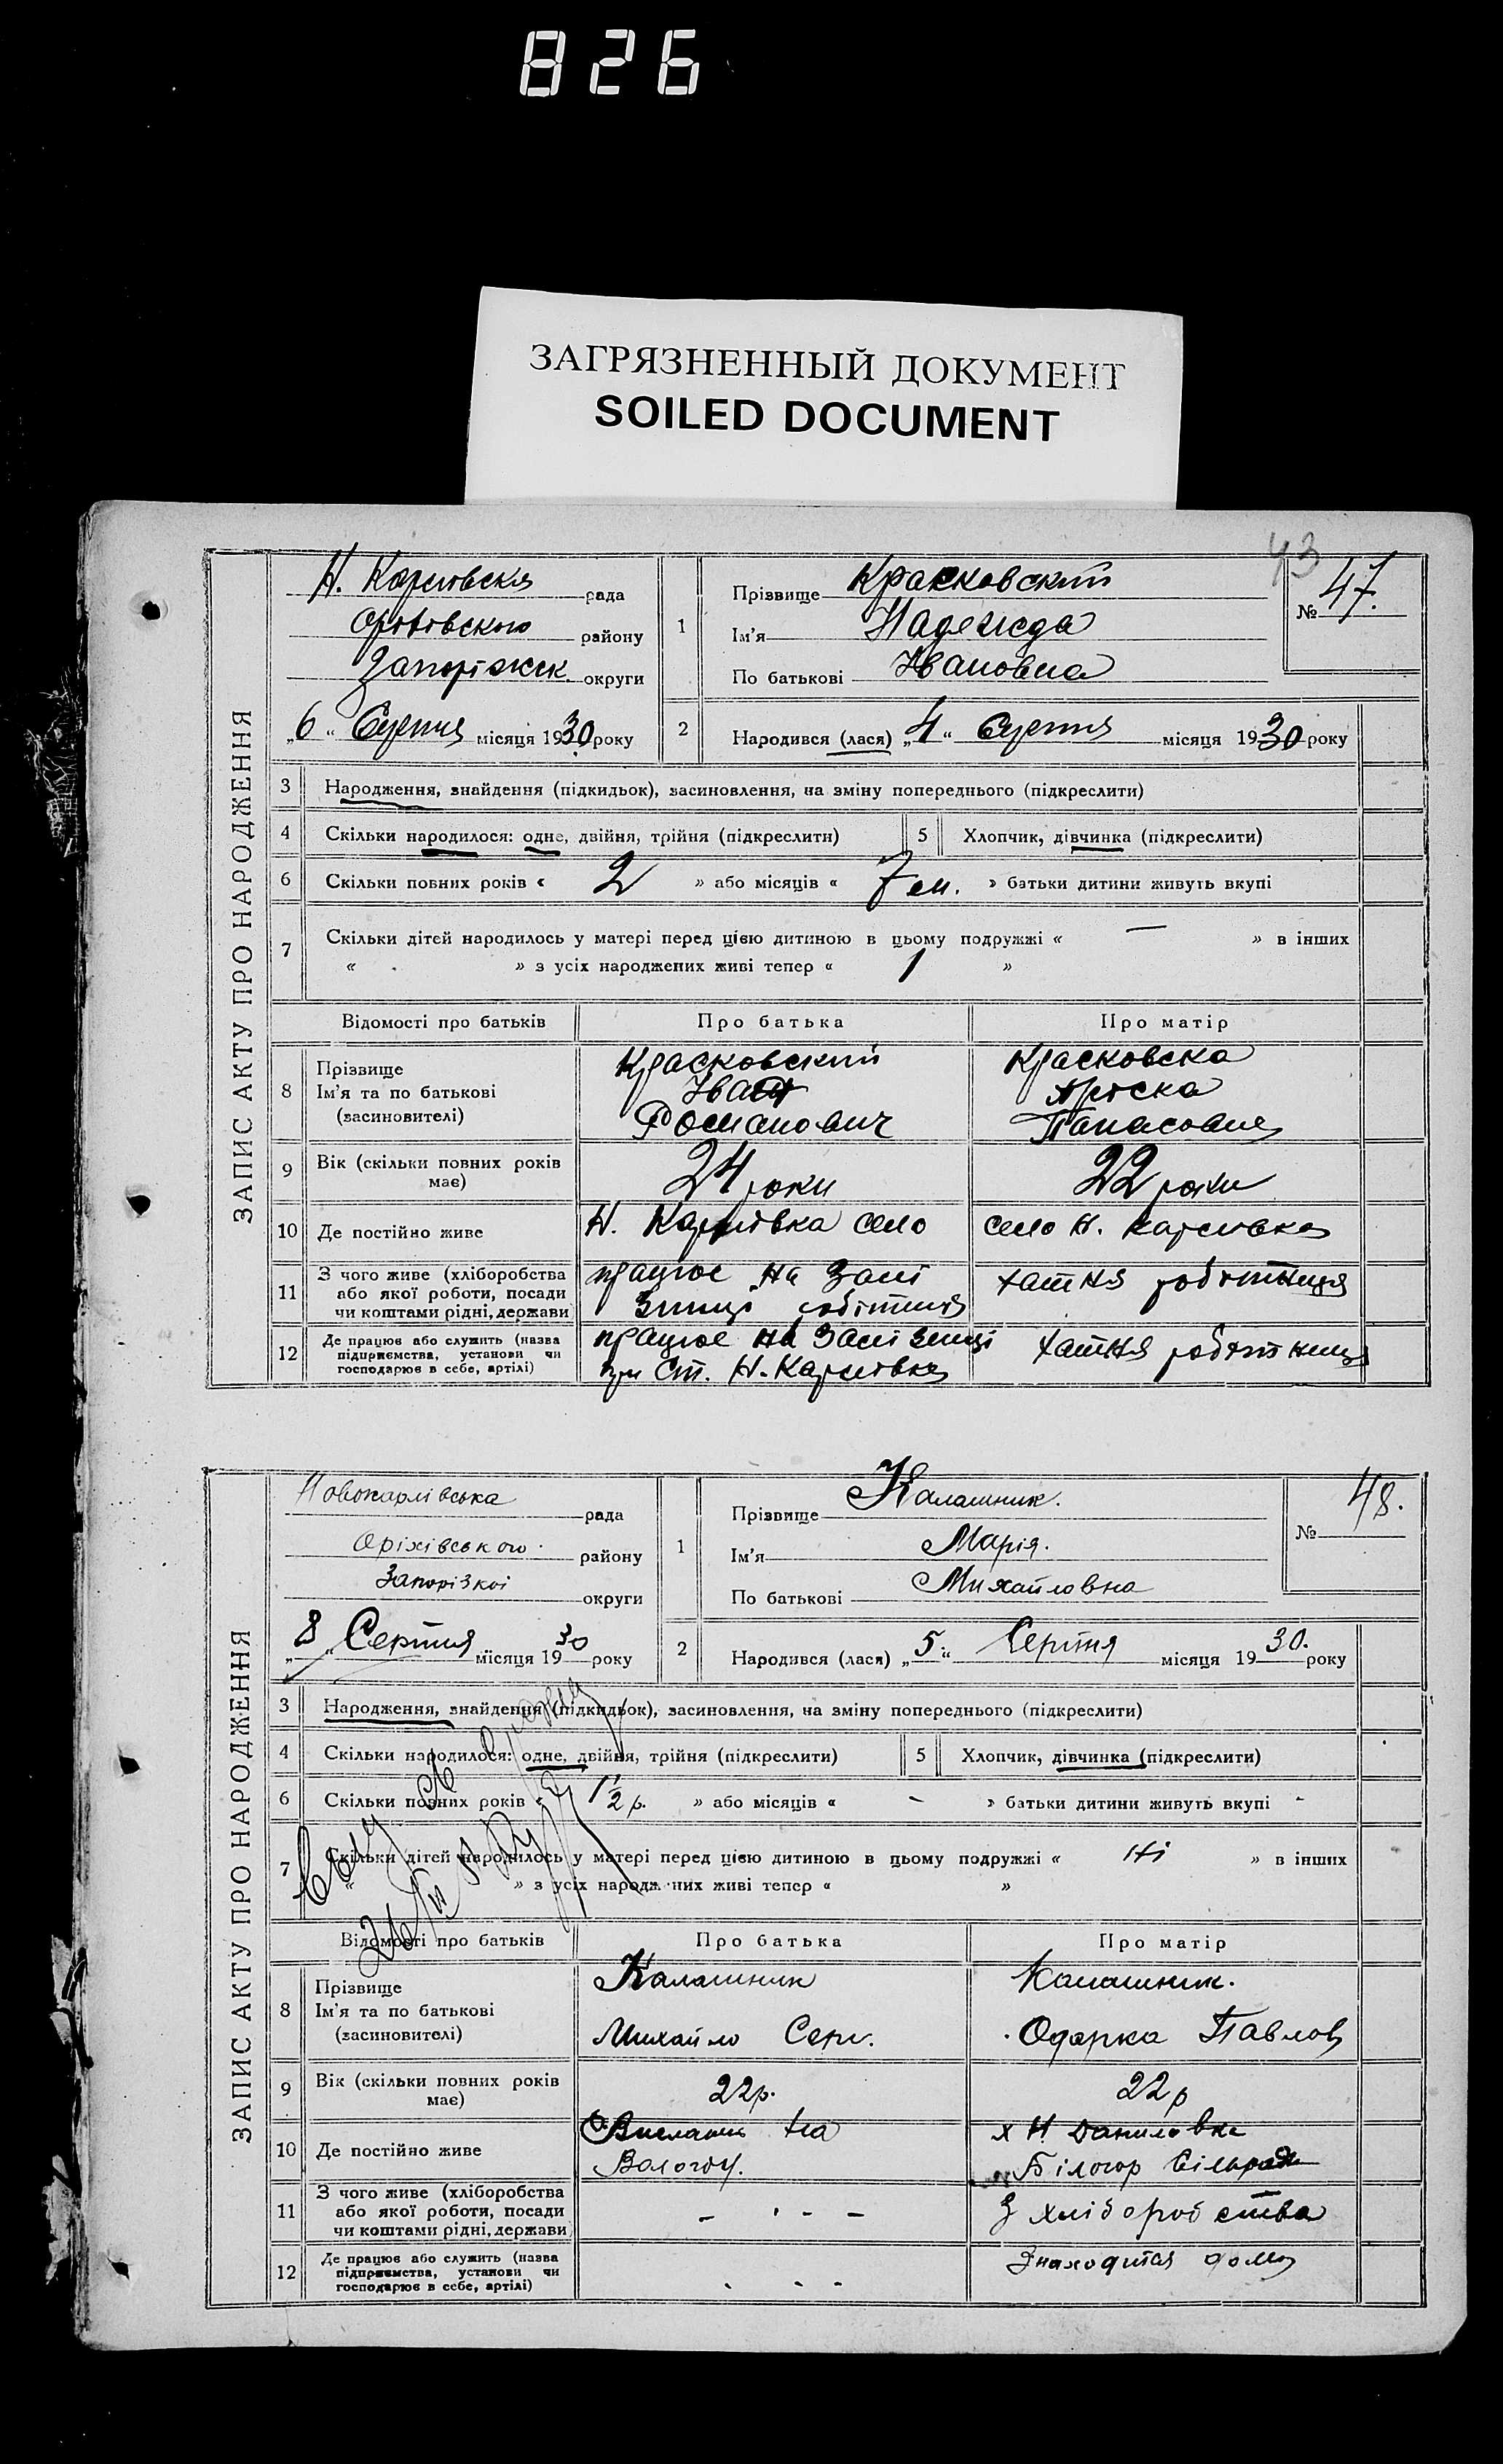 826
ЗАГРЯЗНЕННЫЙ ДОКУМЕНТ
SOILED DOCUMENT
43
ЗАПИС АКТУ ПРО НАРОДЖЕННЯ
Н. Карлівська рада
району
Запоріжськ. округи
„6“ Серпня місяця 1930 року
1
Прізвище Красковский
Ім'я Надежда
По батькові Івановна
№ 47.
2
Народився (лася) „4“ Серпня місяця 1930 року
3 Народження, знайдення (підкидьок), засиновлення, на зміну попереднього (підкреслити)
4 Скільки народилося: одне, двійня, трійня (підкреслити) 5 Хлопчик, дівчинка (підкреслити)
6 Скільки повних років « 2 » або місяців « 7 м. » батьки дитини живуть вкупі
7 Скільки дітей народилось у матері перед цією дитиною в цьому подружжі « — » в інших
« » з усіх народжених живі тепер « 1 »
Відомості про батьків Про батька Про матір
8 Прізвище
Ім'я та по батькові
(засиновителі)
Красковский
Іван
Романович
Красковска
Панасовна
9 Вік (скільки повних років
має)
24 роки
22 роки
10 Де постійно живе
Н. Карлівка село
село Н. Карловка
11 З чого живе (хліборобства
або якої роботи, посади
чи коштами рідні, держави
працює на Залі
зниці робітник
хатня робітниця
12 Де працює або служить (назва
підприємства, установи чи
господарює в себе, артілі)
працює на Залізниці
при Ст. Н. Карлівка
хатня робітниця
ЗАПИС АКТУ ПРО НАРОДЖЕННЯ
Новокарлівська рада
Оріхівського району
Запорізкої округи
„8“ Серпня місяця 1930 року
1
Прізвище Калашник.
Ім'я Марія.
По батькові Михайловна
№ 48.
2
Народився (лася) „5“ Серпня місяця 1930. року
3 Народження, знайдення (підкидьок), засиновлення, на зміну попереднього (підкреслити)
4 Скільки народилося: одне, двійня, трійня (підкреслити) 5 Хлопчик, дівчинка (підкреслити)
6 Скільки повних років « 1½ р. » або місяців « - » батьки дитини живуть вкупі -
7 Скільки дітей народилось у матері перед цією дитиною в цьому подружжі « ні » в інших
« » з усіх народж них живі тепер « »
Відомості про батьків Про батька Про матір
8 Прізвище
Ім'я та по батькові
(засиновителі)
Калашник
Михайло Серг.
Калашник.
Одарка Павлов
9 Вік (скільки повних років
має)
22р.
22р
10 Де постійно живе
на
Вологду.
х Н Даниловка
Білогор Сільрада
11 З чого живе (хліборобства
або якої роботи, посади
чи коштами рідні, держави
- - - -
З хліборобства
12 Де працює або служить (назва
підприємства, установи чи
господарює в себе, артілі)
- - -
Знаходится дома